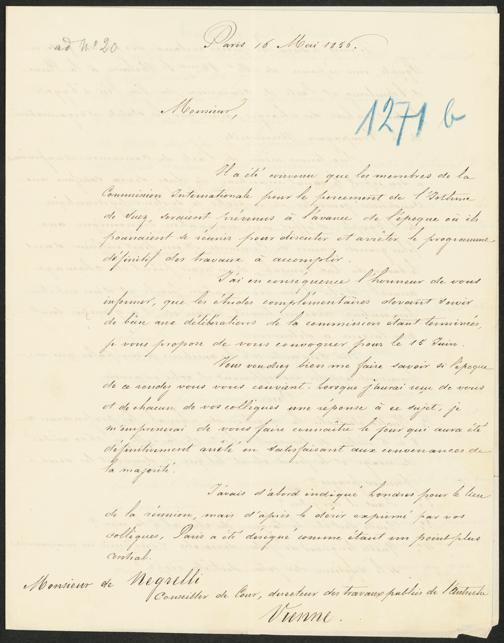 ad No 20
Paris 16 Mai 1856.
1271 b
Monsieur,
Il a été convenu que les membres de la
Commission Internationale pour le percement de l'Isthme
de Suez seraient prévenus à l'avance de l'époque où ils
pourraient se réunir pour discuter et arrêter le programme
définitif des travaux à accomplir.
J'ai en conséquence l'honneur de vous
informer, que les études complémentaires devant servir
de base aux délibérations de la commission étant terminées,
je vous propose de vous convoquer pour le 15 Juin.
Vous voudrez bien me faire savoir si l'époque
de ce rendez vous vous convient. Lorsque j'aurai reçu de vous
et de chacun de vos collègues une réponse à ce sujet, je
m'empresserai de vous faire connaître le jour qui aura été
définitivement arrêté en satisfaisant aux convenances de
la majorité.
J'avais d'abord indiqué Londres pour le lieu
de la réunion, mais d'après le désir exprimé par vos
collègues, Paris a été désigné comme étant un point plus
central.
Monsieur de Negrelli
Conseiller de Cour, directeur des travaux publics de l'Autriche
Vienne.